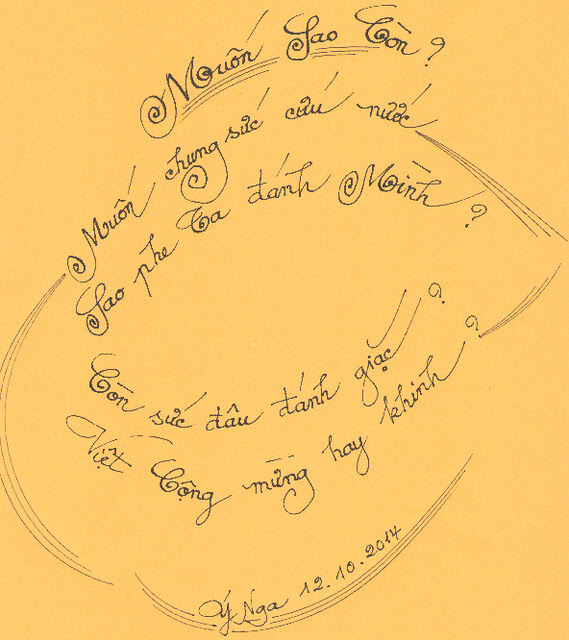 Muốn Sao Còn?
Muốn chung sức cứu nước
Sao phe Ta đánh Mình?
Còn sức đâu đánh giặc?
Việt Cộng mừng hay khinh?
Ý Nga 12.10.2014